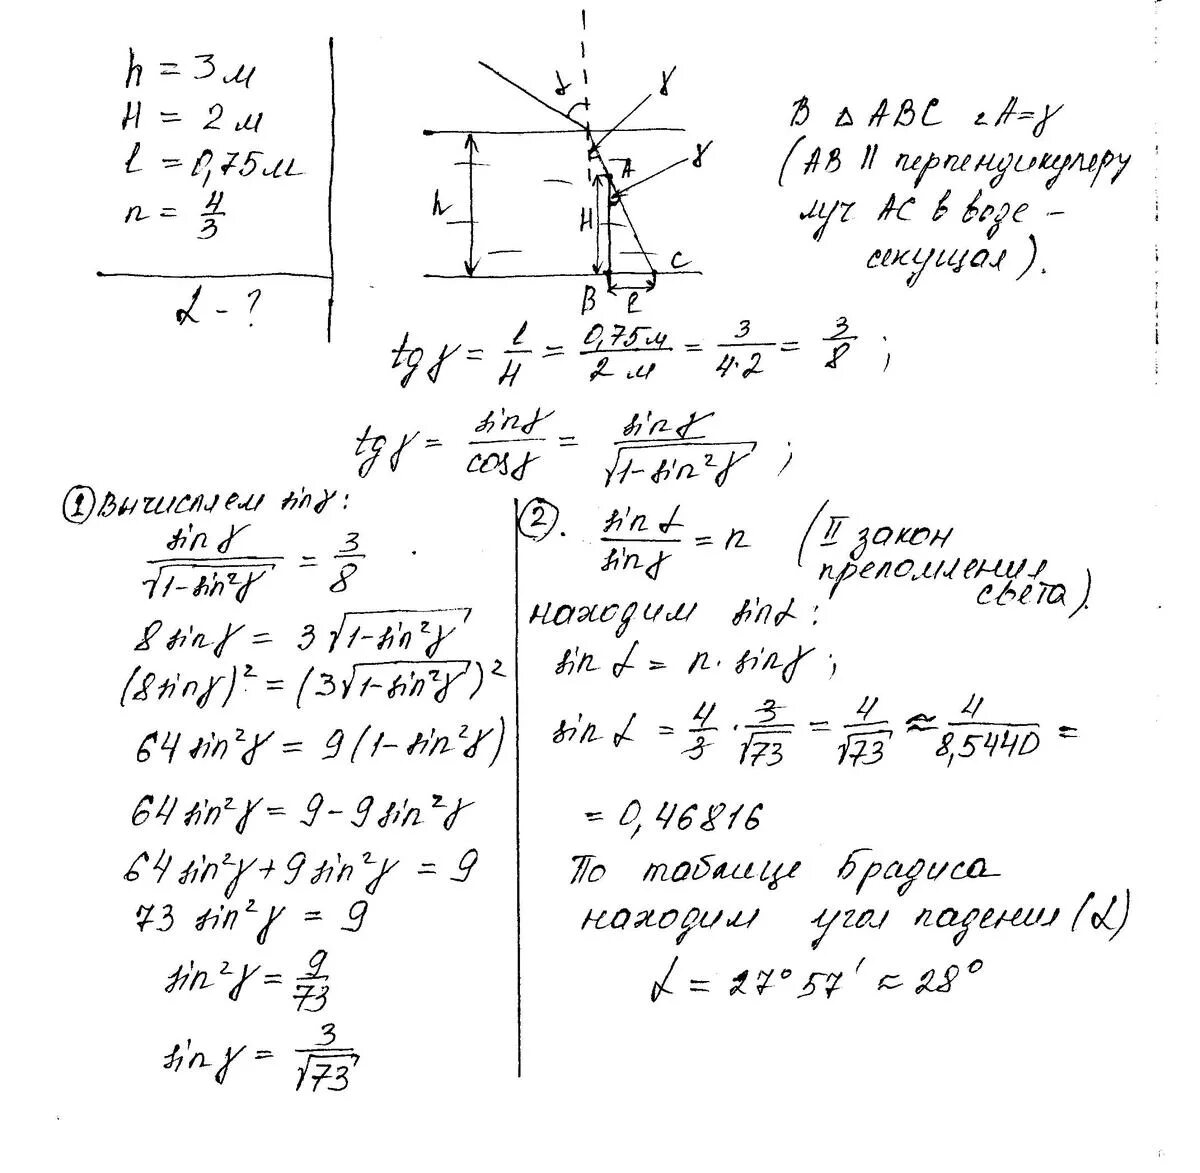 h = 3 м
H = 2 м
l = 0,75 м
n = 4/3
α - ?
α
γ
γ
A
h
H
C
B
l
В △ ABC ∠A = γ
(AB || перпендикуляру
луч AC в воде -
секущая).
tg γ = l/H = 0,75 м/2 м = 3/4·2 = 3/8 ;
tg γ = sin γ/cos γ = sin γ/√1-sin²γ ;
① Вычисляем sin γ:
sin γ/√1-sin²γ = 3/8
8 sin γ = 3√1-sin²γ
(8 sin γ)² = (3√1-sin²γ)²
64 sin²γ = 9(1-sin²γ)
64 sin²γ = 9 - 9 sin²γ
64 sin²γ + 9 sin²γ = 9
73 sin²γ = 9
sin²γ = 9/73
sin γ = 3/√73
②. sin α/sin γ = n (II закон
преломления
света).
находим sin α:
sin α = n · sin γ ;
sin α = 4/3 · 3/√73 = 4/√73 ≈ 4/8,5440 =
= 0,46816
По таблице Брадиса
находим угол падения (α)
α = 27° 57' ≈ 28°